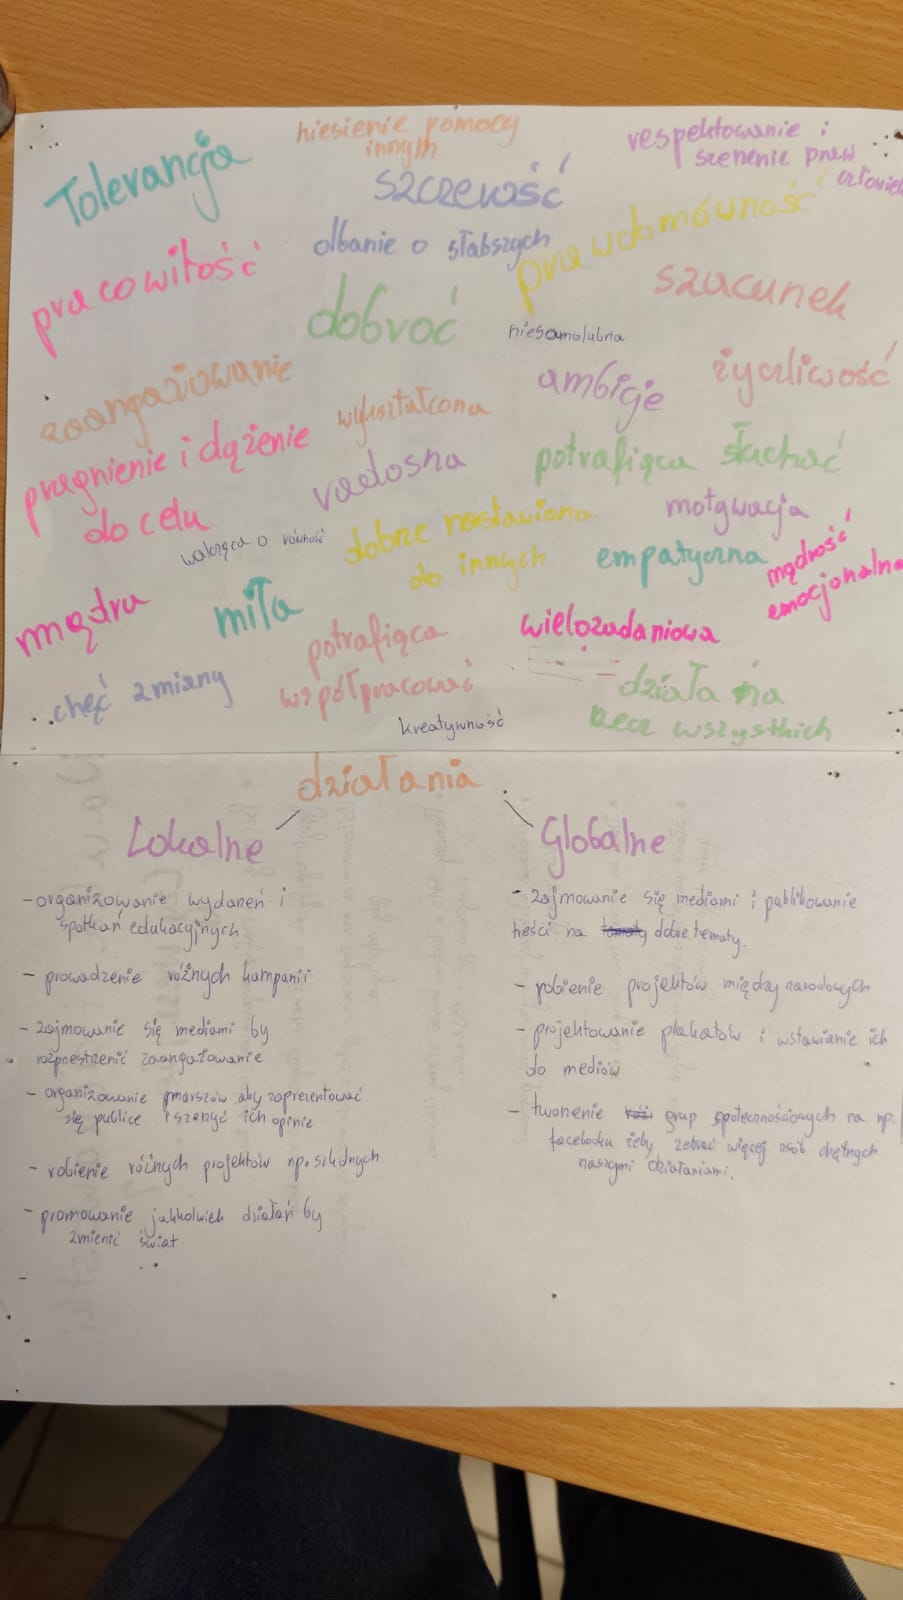 Tolerancja
niesienie pomocy
innym
respektowanie i
szerzenie praw
człowiek
szczerość
dbanie o słabszych
prawdomówność
pracowitość
dobroć
szacunek
niesamolubna
zaangażowanie
wykształcona
ambicje
życzliwość
pragnienie i dążenie
do celu
radosna
potrafiąca słuchać
walcząca o równość
dobrze nastawiona
do innych
motywacja
empatyczna
mądrość
emocjonalna
mądra
miła
potrafiąca
współpracować
wielozadaniowa
chęć zmiany
kreatywność
działa na
rzecz wszystkich
działania
Lokalne
- organizowanie wydarzeń i
spotkań edukacyjnych
- prowadzenie różnych kampanii
- zajmowanie się mediami by
rozprzestrzenić zaangażowanie
- organizowanie marszów aby zaprezentować
się publice i szerzyć ich opinie
- robienie różnych projektów np. szkolnych
- promowanie jakkolwiek działań by
zmienić świat
-
Globalne
- zajmowanie się mediami i publikowanie
treści na dobre tematy.
- robienie projektów między narodowych
- projektowanie plakatów i wstawianie ich
do mediów
- tworzenie grup społecznościowych na np.
facebooku żeby zebrać więcej osób chętnych
naszymi działaniami.